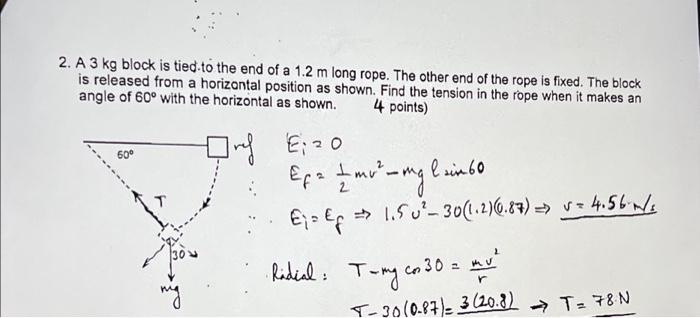 2. A 3 kg block is tied to the end of a 1.2 m long rope. The other end of the rope is fixed. The block
is released from a horizontal position as shown. Find the tension in the rope when it makes an
angle of 60° with the horizontal as shown. 4 points)
60°
ref
E_i = 0
E_f = 1/2 mv² - mg l sin 60
E_i = E_f ⇒ 1.5 v² - 30(1.2)(0.87) ⇒ v = 4.56 m/s
T
30
mg
Radial: T - mg cos 30 = mv²/r
T - 30(0.87) = 3(20.8) → T = 78 N